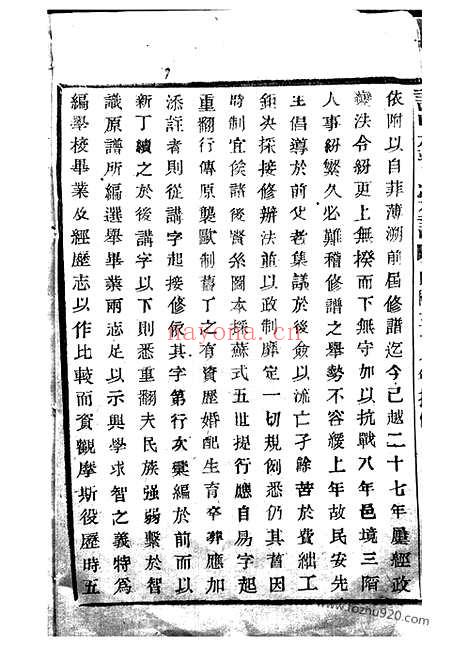 依附以自菲薄溯前屆修譜迄今已越二十七年屢經政
變法令紛更上無揆而下無守加以抗戰八年邑境三陷
人事紛繁久必難稽修譜之舉勢不容緩上年故民安先
生倡導於前父老集議於後僉以流亡孑餘苦於費絀工
鉅决採接修辦法並以政制靡定一切規例悉仍其舊因
時制宜俟諸後賢系圖本採蘇式五世提行應自易字起
重翻行傳原襲歐制舊丁之有資歷婚配生育卒葬應加
添註者則從講字起接修依其字第行次彙編於前而以
新丁續之於後講字以下則悉重翻夫民族強弱繫於智
識原譜所編選舉畢業兩志足以示興學求智之義特爲
編舉校畢業及經歷志以作比較而資觀摩斯役歷時五
nayona.cn
www.lozhu920.com